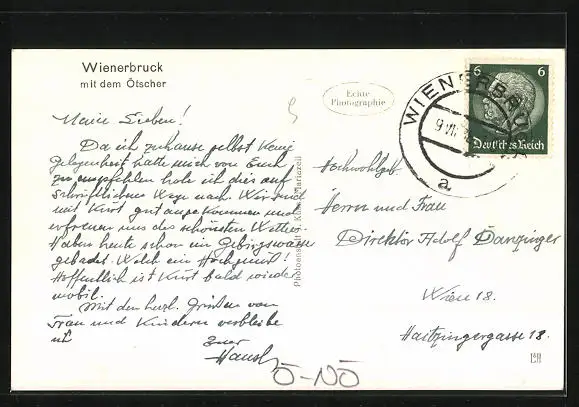 Wienerbruck
mit dem Ötscher
Echte
Photographie
WIENERBRUCK
9.VII
a
6 6
Deutsches Reich
Meine Lieben!
Da ich zuhause selbst keine
Gelegenheit hatte mich von Euch
zu empfehlen hole ich dies auf
schriftlichem Wege nach. Wir sind
mit Kurt gut angekommen und
erfreuen uns des schönsten Wetters
Haben heute schon im Gebirgswasser
gebadet. Welch ein Hochgenuß!
Hoffentlich ist Kurt bald wieder
mobil.
Mit den herzl. Grüßen von
Frau und Kindern verbleibe
ich Euer
Hansl
Photoanstalt Mariazell
Hochwohlgeb
Herrn und Frau
Direktor Adolf Danzinger
Wien 18.
Haitzingergasse 18.
Ö-NÖ